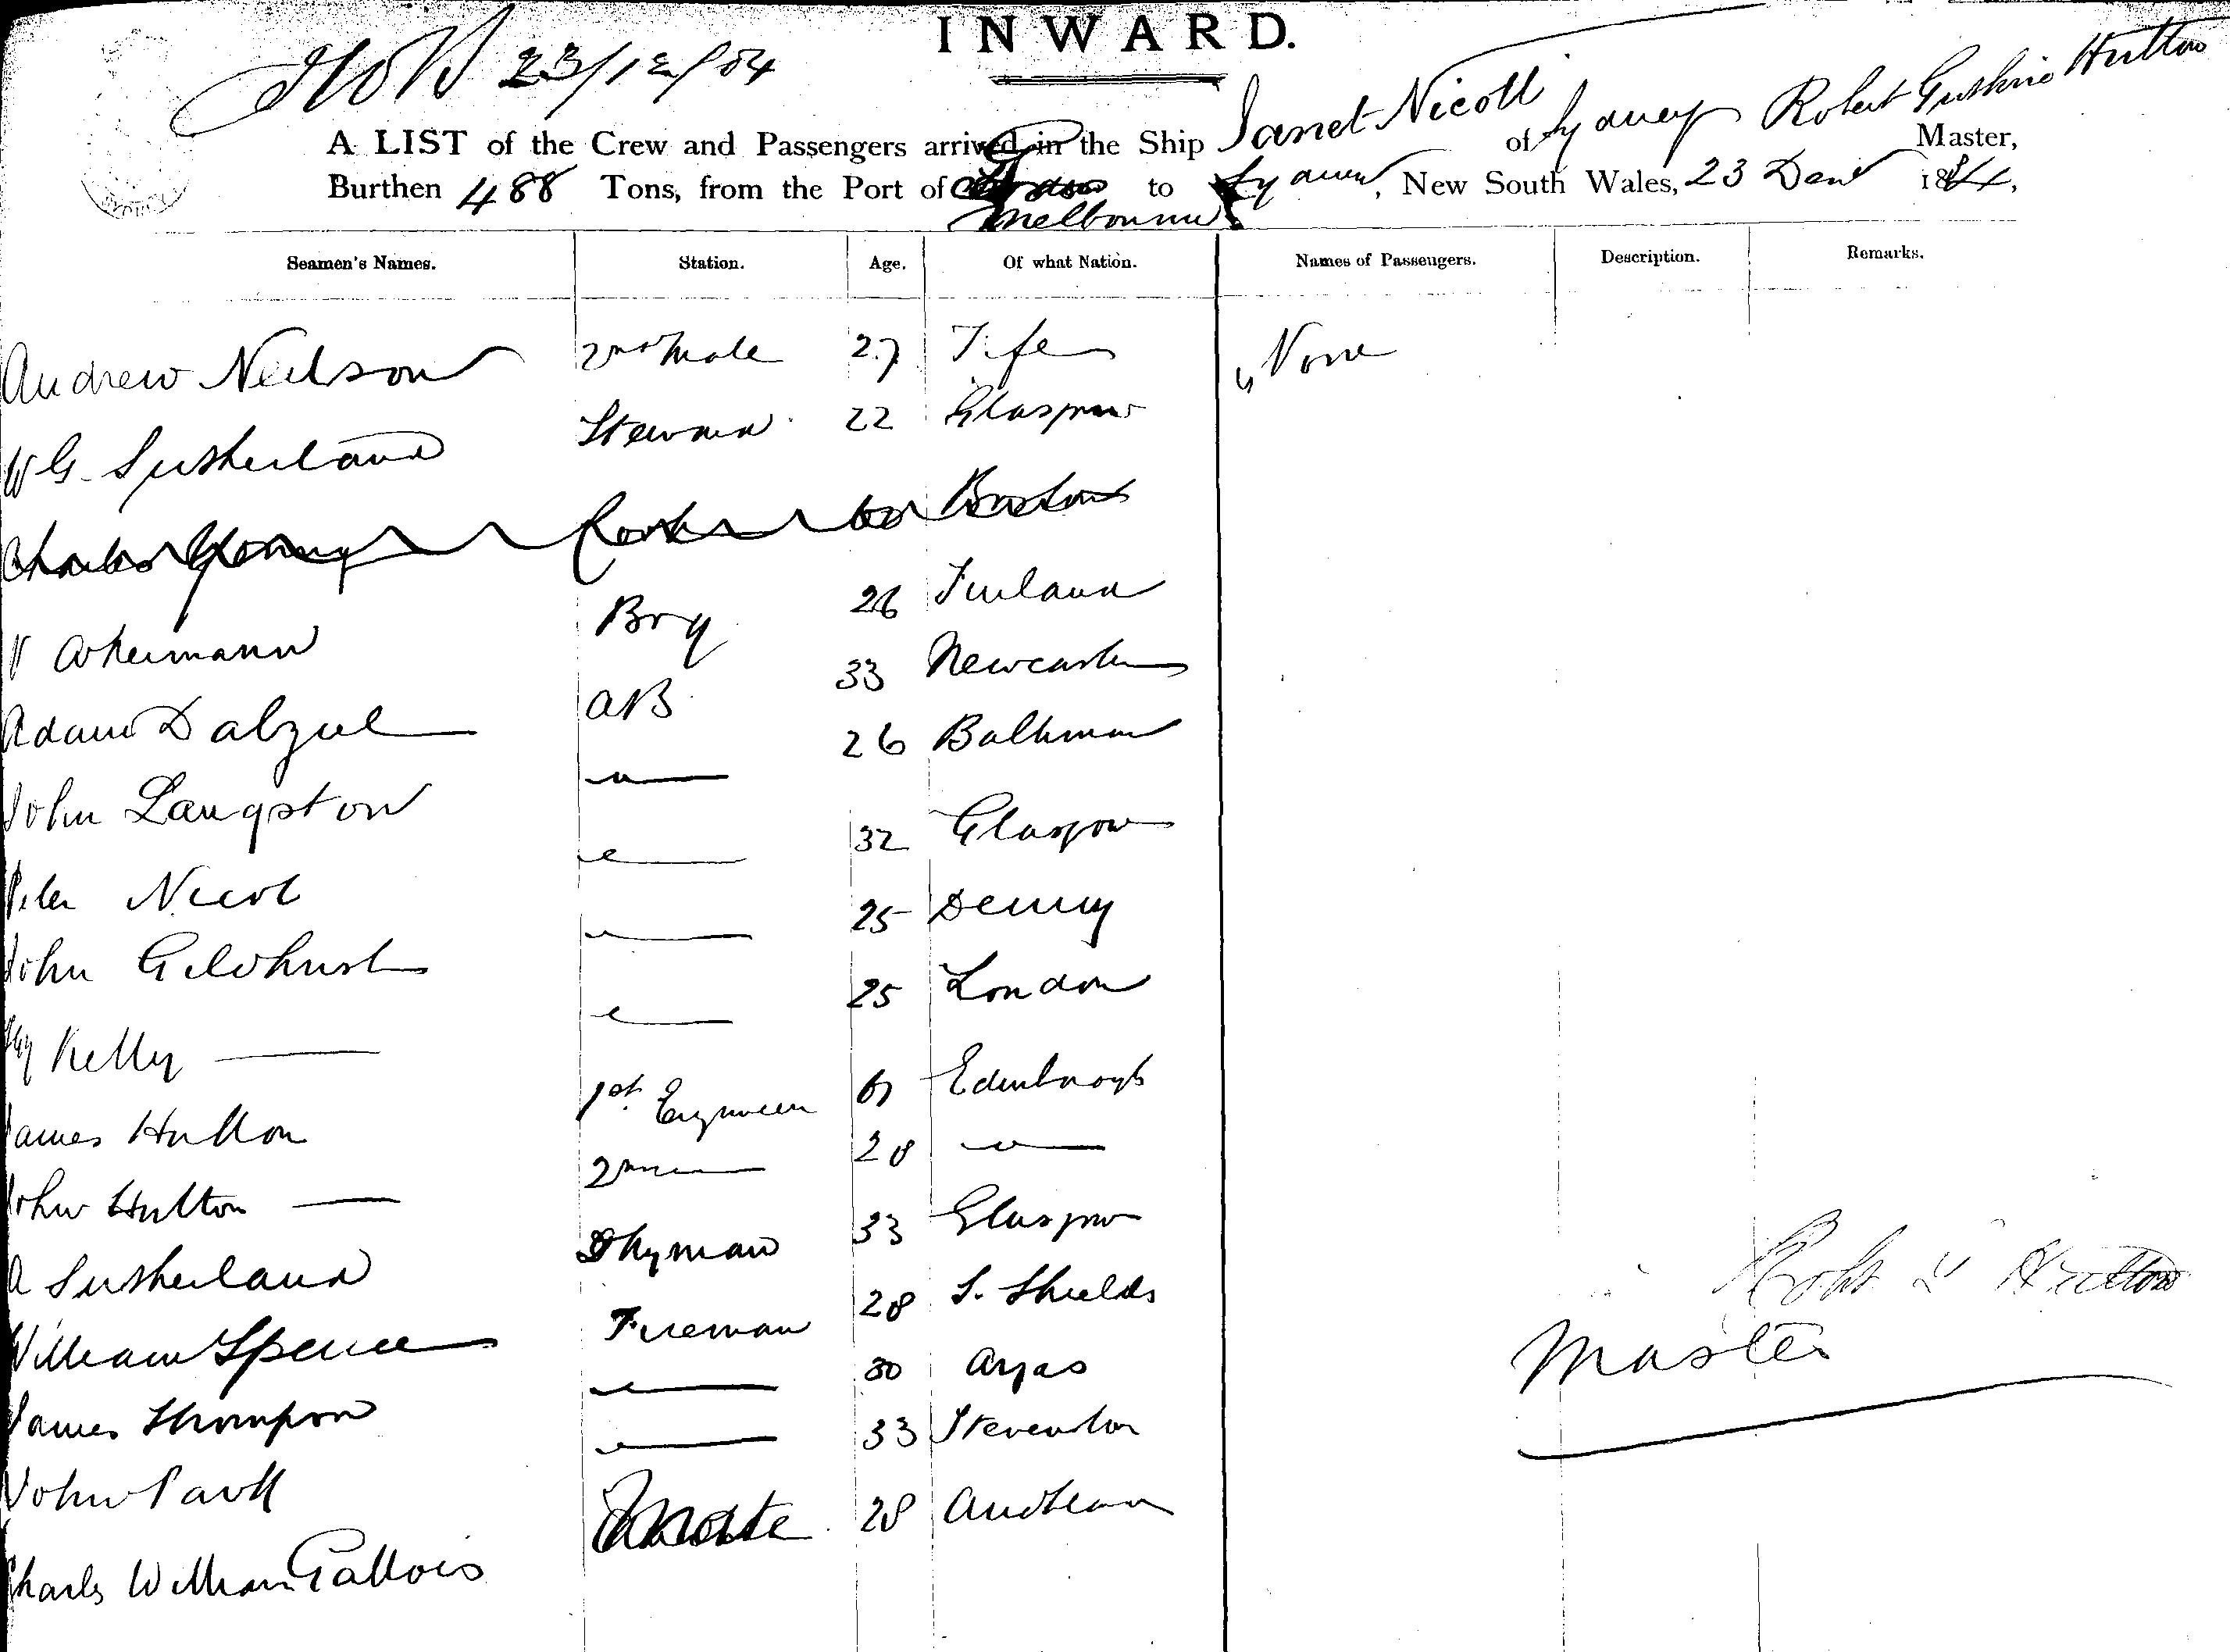 INWARD.
23/12/84
A LIST of the Crew and Passengers arrived in the Ship Janet Nicoll of Sydney Robert Hutton Master,
Burthen 488 Tons, from the Port of Melbourne to Sydney, New South Wales, 23 Decr 1884,
Seamen's Names. Station. Age. Of what Nation. Names of Passengers. Description. Remarks.
Andrew Neilson 2nd Mate 27 Fife " None
W G. Sutherland Steward 22 Glasgow
Charles Young Cook Boston
Ackermann 26 Finland
Adam Dalziel AB 33 Newcastle
John Langston " 26
Peter Nicol " 32 Glasgow
John Gilchrist " 25 Denny
Hy Kelly " 25 London
James Hutton 1st Engineer 61 Edinburgh
John Hutton 2nd " 28 "
A Sutherland Dkyman 33 Glasgow
William Spence Fireman 28 S. Shields
James Thompson " 30
John Park " 33 Stevenston
Charles William Gallois Mate 28
Robt Hutton
Master